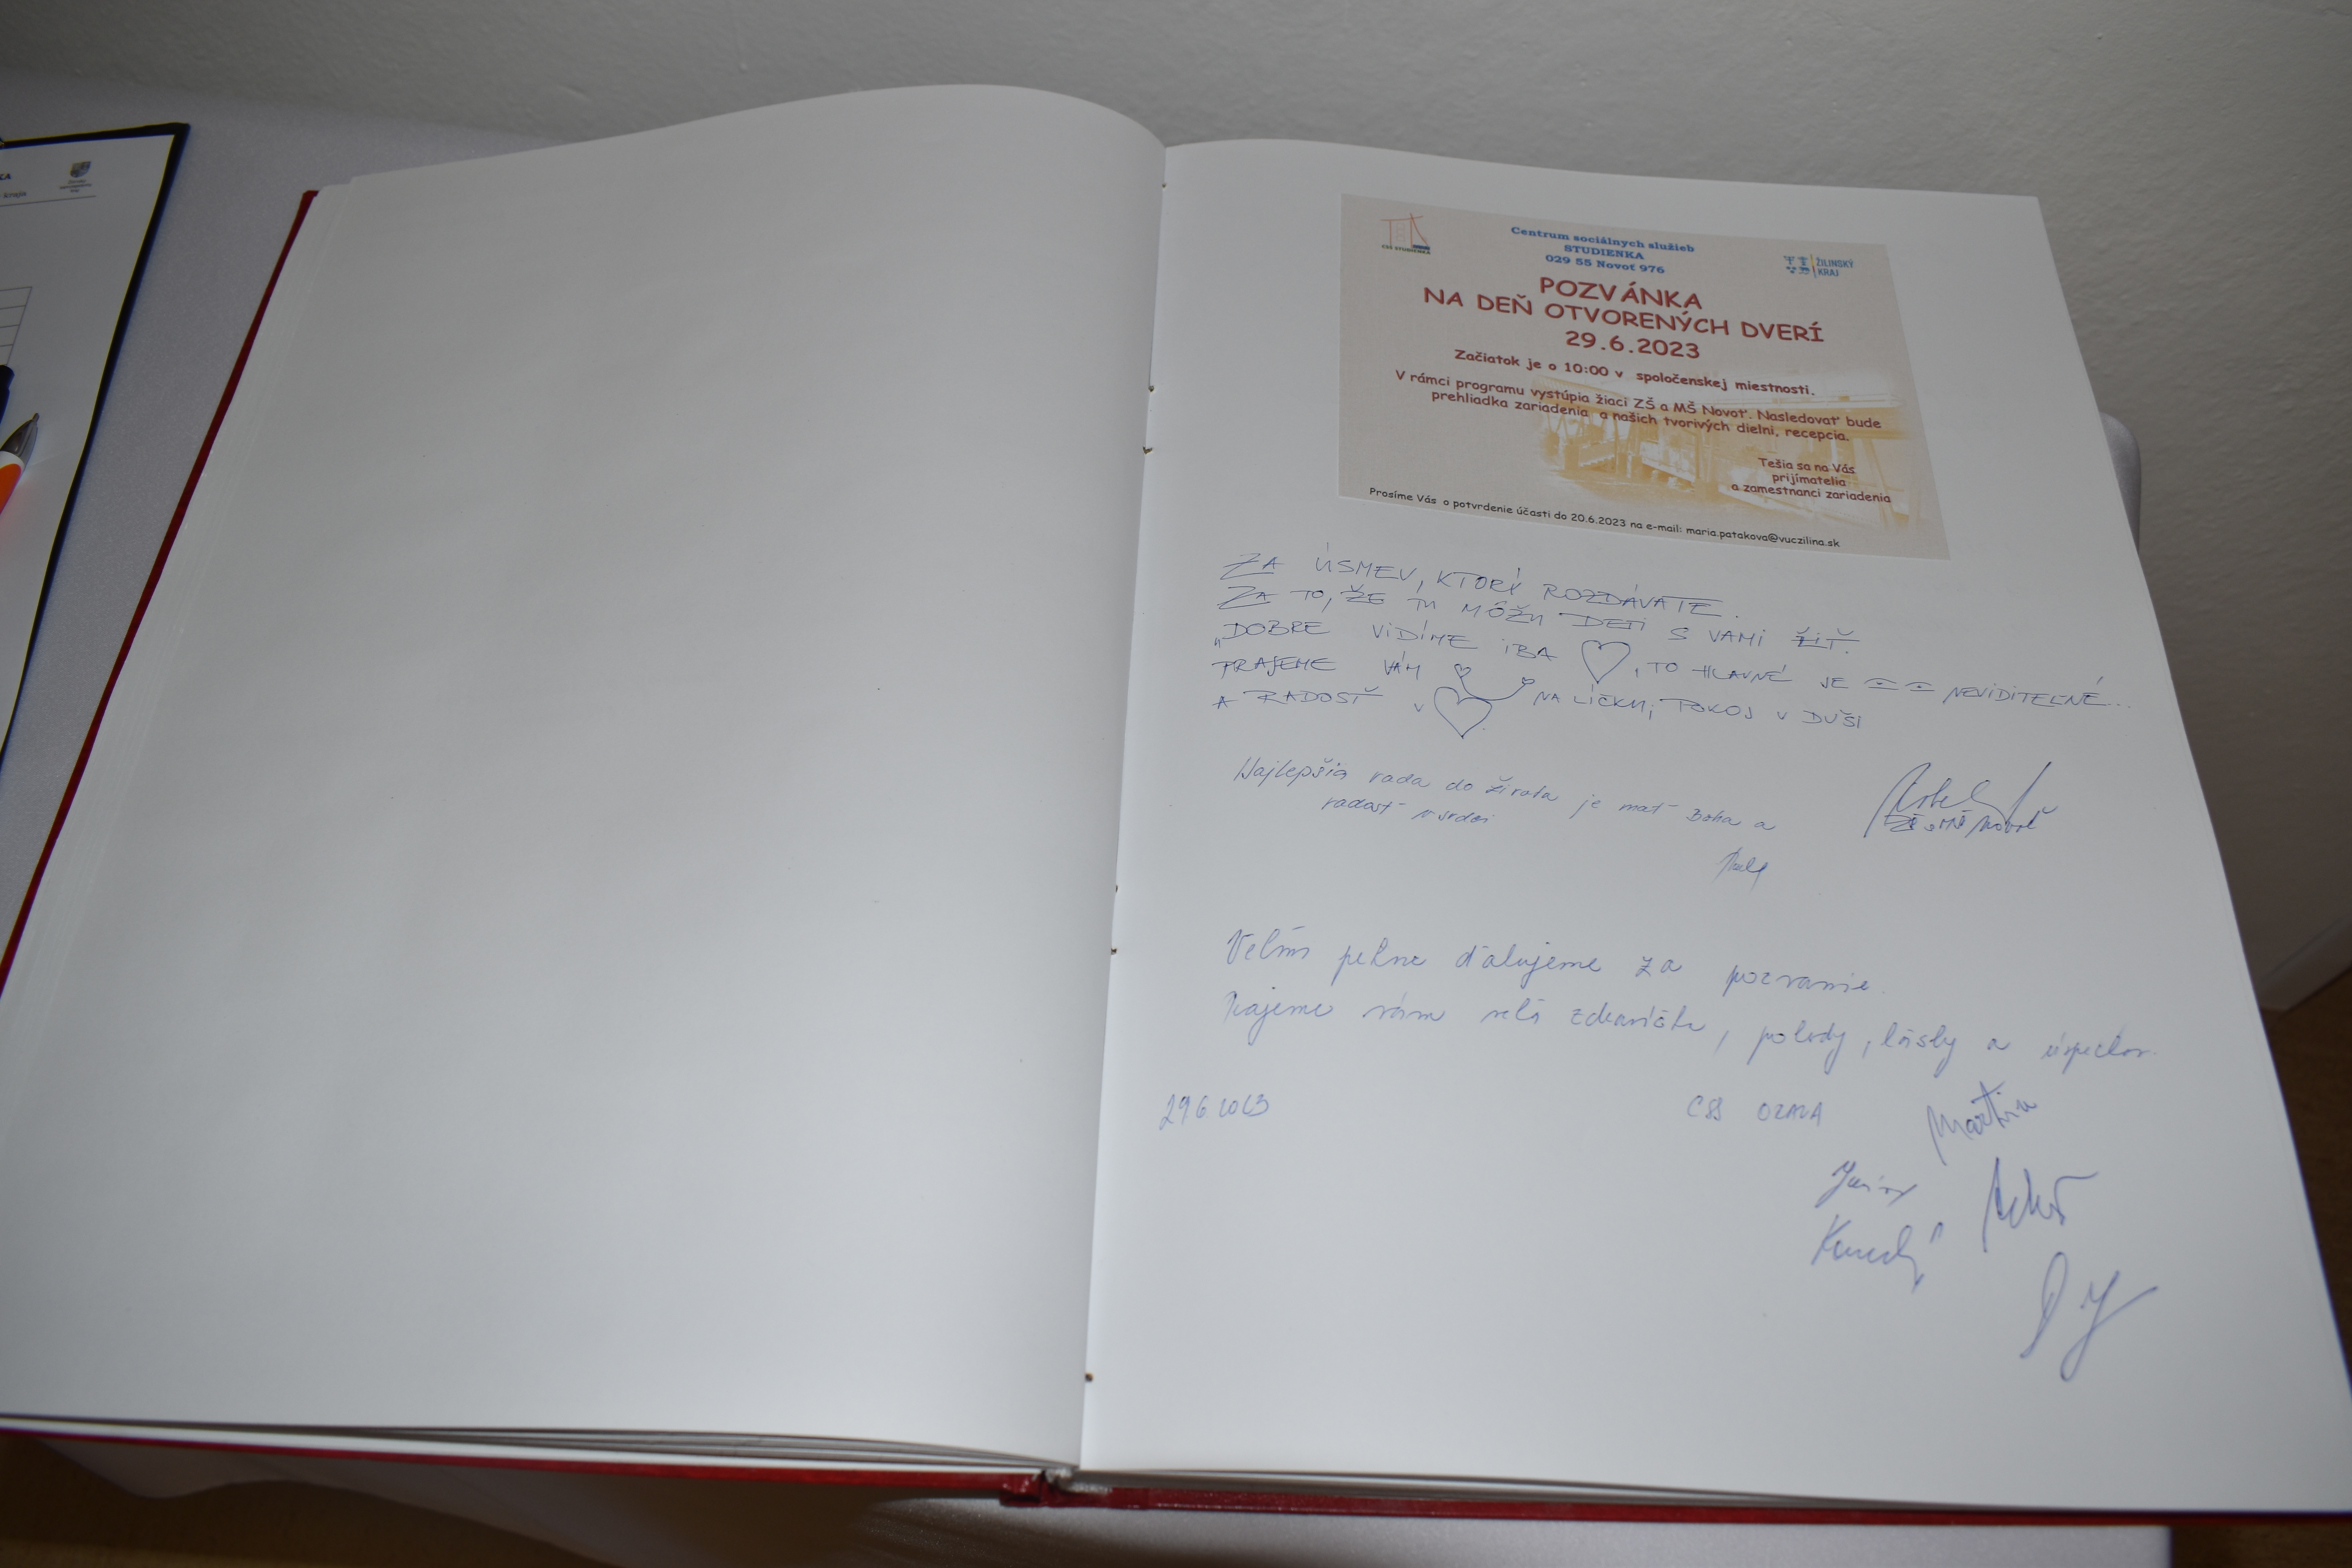 KA
kraja
CSS STUDIENKA
Centrum sociálnych služieb
STUDIENKA
029 55 Novoť 976
ŽILINSKÝ
KRAJ
POZVÁNKA
NA DEŇ OTVORENÝCH DVERÍ
29.6.2023
Začiatok je o 10:00 v spoločenskej miestnosti.
V rámci programu vystúpia žiaci ZŠ a MŠ Novoť. Nasledovať bude
prehliadka zariadenia a našich tvorivých dielni, recepcia.
Tešia sa na Vás
prijímatelia
a zamestnanci zariadenia
Prosíme Vás o potvrdenie účasti do 20.6.2023 na e-mail: maria.patakova@vuczilina.sk
ZA ÚSMEV, KTORÝ ROZDÁVATE.
ZA TO, ŽE TU MÔŽU DETI S VAMI ŽIŤ.
„DOBRE VIDÍME IBA , TO HLAVNÉ JE NEVIDITEĽNÉ...
PRAJEME VÁM NA LÍČKU, POKOJ V DUŠI
A RADOSŤ V
Najlepšia rada do života je mať Boha a
radosť v srdci
ZŠ s MŠ Novoť
Veľmi pekne ďakujeme za pozvanie.
Prajeme vám veľa zdravíčka, pohody, lásky a úspechov.
29.6.2023
CSS ORAVA
Martina